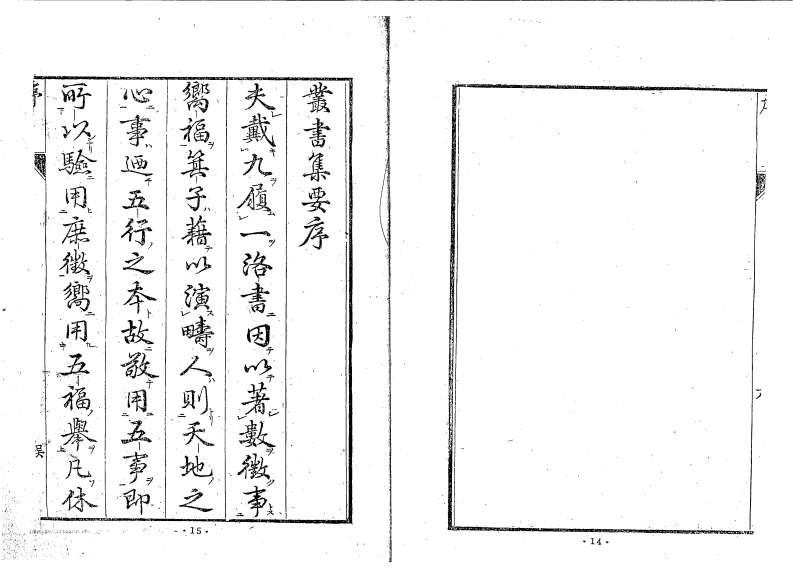 叢書集要序
夫戴九履一洛書因以著數徵事
嚮福箕子藉以演疇人則天地之
心事迺五行之本故敬用五事即
所以驗用庶徵嚮用五福舉凡休
·15·
·14·